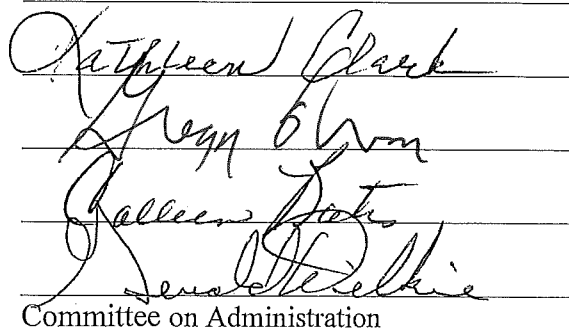 Kathleen Clark
Gregg Olson
Colleen
Gerald Wilkie
Committee on Administration